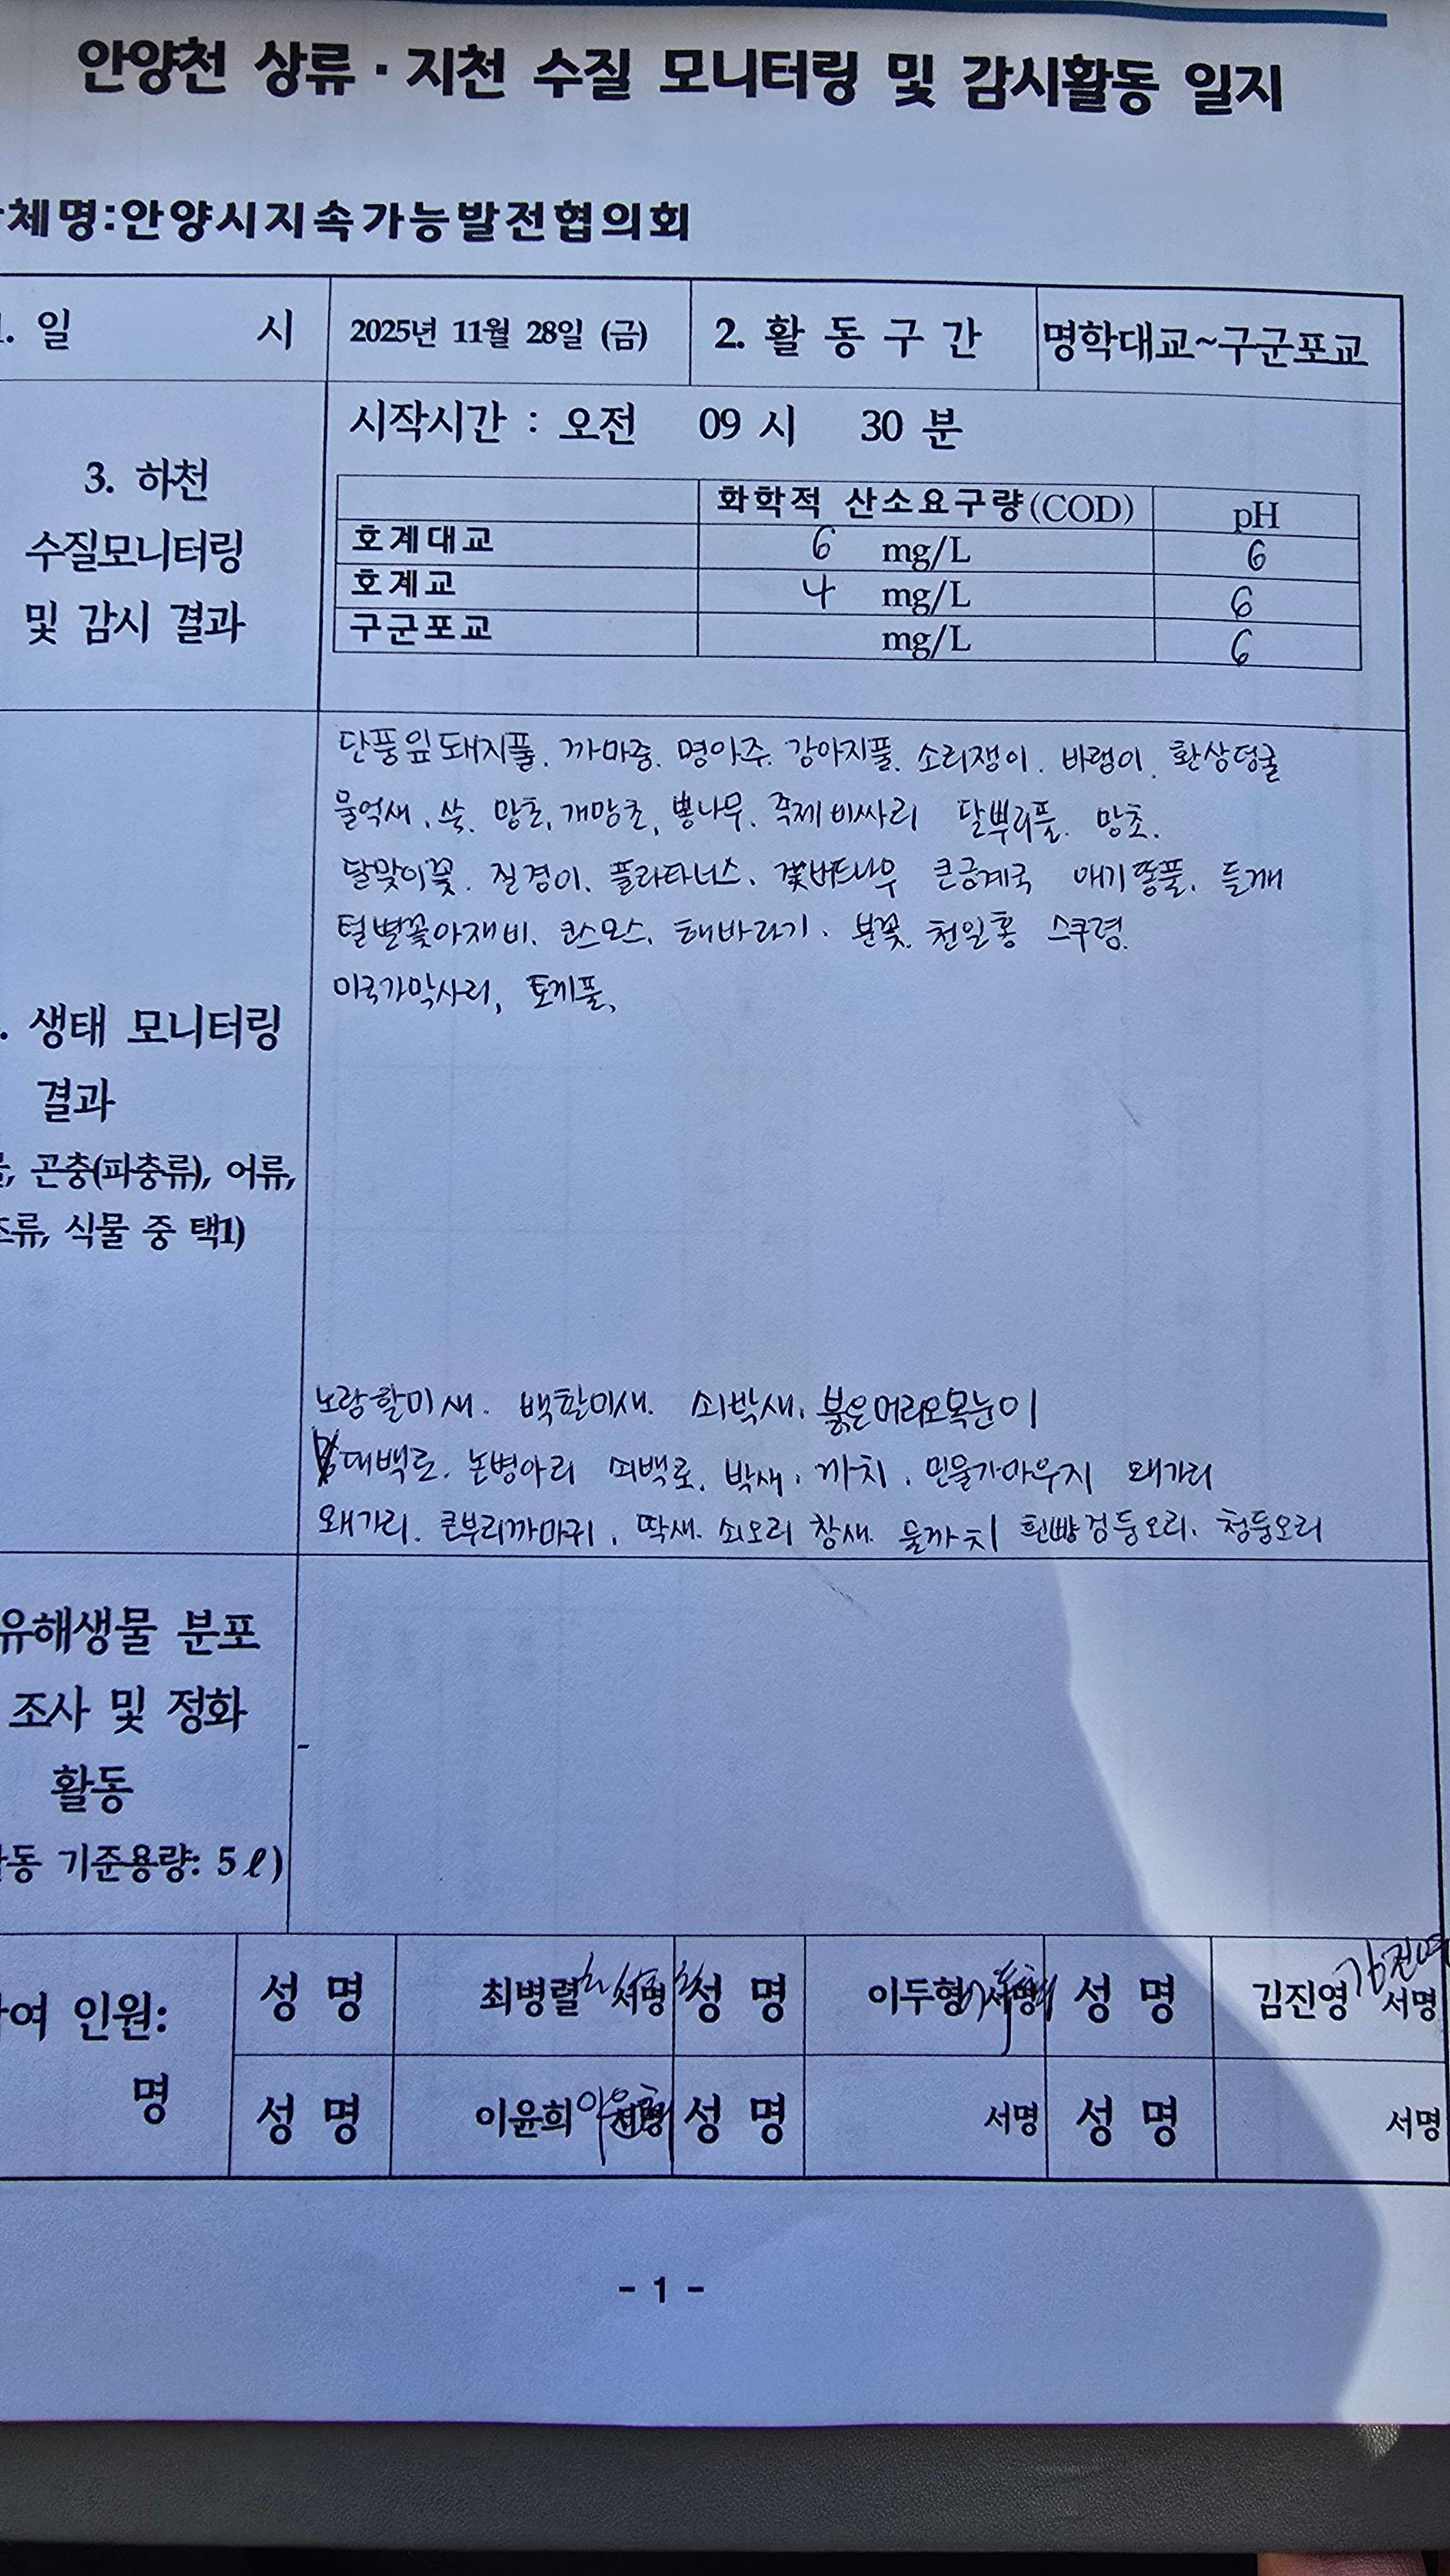 안양천 상류·지천 수질 모니터링 및 감시활동 일지
체명:안양시지속가능발전협의회
1. 일 시 2025년 11월 28일 (금) 2. 활 동 구 간 명학대교~구군포교
3. 하천
수질모니터링
및 감시 결과
시작시간 : 오전 09 시 30 분
화학적 산소요구량(COD) pH
호계대교 6 mg/L 6
호계교 4 mg/L 6
구군포교 mg/L 6
. 생태 모니터링
결과
, 곤충(파충류), 어류,
조류, 식물 중 택1)
단풍잎돼지풀. 까마중. 명아주. 강아지풀. 소리쟁이. 바렝이. 환삼덩굴
물억새. 쑥. 망초, 개망초, 뽕나무. 족제비싸리 달뿌리풀. 망초.
달맞이꽃. 질경이. 플라타너스. 갯버드나무 큰금계국 애기똥풀. 들깨
털별꽃아재비. 코스모스. 해바라기. 분꽃. 천일홍 스쿠렁.
미국가막사리, 토끼풀,
노랑할미새. 백할미새. 쇠박새. 붉은머리오목눈이
대백로. 논병아리 쇠백로. 박새. 까치. 민물가마우지 왜가리
왜가리. 큰부리까마귀. 딱새. 쇠오리 참새. 물까치 흰뺨검둥오리. 청둥오리
유해생물 분포
조사 및 정화
활동
동 기준용량: 5ℓ)
-
여 인원:
명
성 명 최병렬 서명 성 명 이두형 서명 성 명 김진영 김진영 서명
성 명 이윤희 이윤희 서명 성 명 서명 성 명 서명
- 1 -